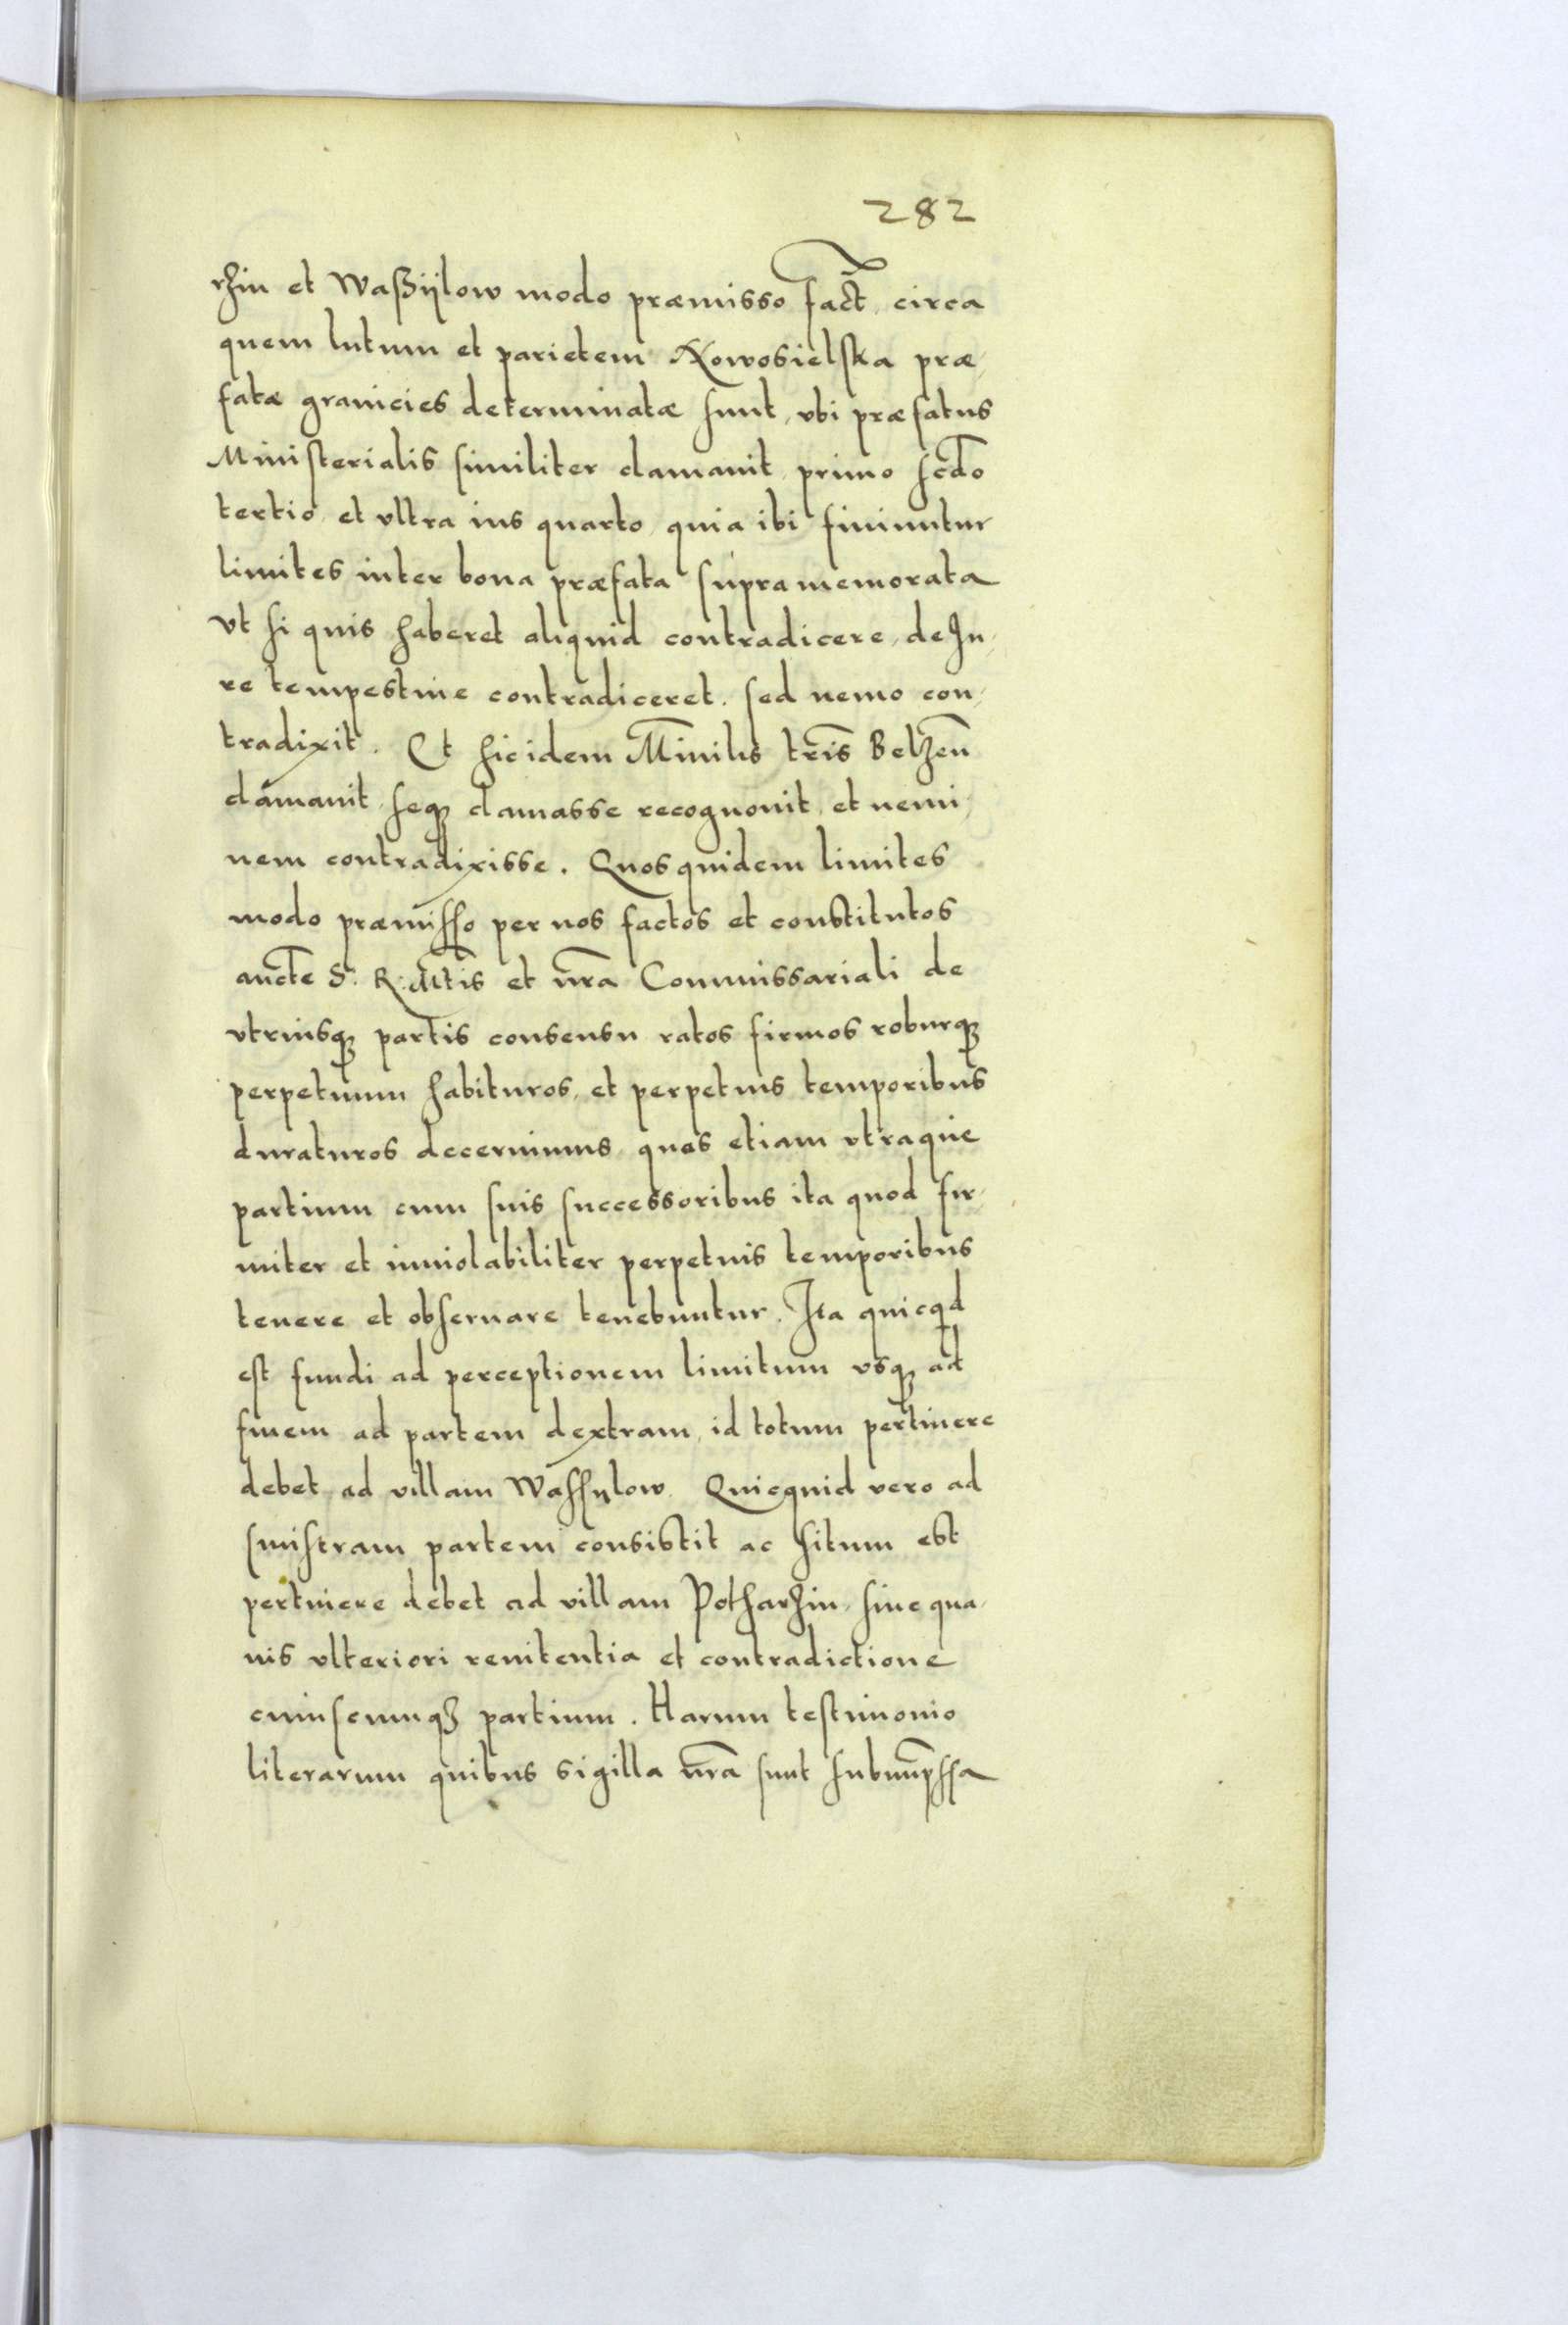 282
rzin et Waßÿlow modo præmisso fact̃, circa
quem lutum et parietem Nowosielska præ,
fatæ granicies determinatæ sunt, vbi præfatus
Ministerialis similiter clamauit, primo scdo
tertio, et vltra ius quarto, quia ibi finiuntur
limites inter bona præfata supra memorata
Vt si quis haberet aliquid contradicere, de Iu,
re tempestiue contradiceret. sed nemo con,
tradixit. Et hic idem Minilis tr̃is Belzen̄
clamauit, seq₃ clamasse recognouit, et nemi,
nem contradixisse. Quos quidem limites
modo præmisso per nos factos et constitutos
aucte S. R. Mtis et nr̃a Commissariali de
vtriusq₃ partis consensu ratos firmos roburq₃
perpetuum habituros, et perpetuis temporibus
duraturos decernimus, quos etiam vtraque
partium cum suis successoribus ita quod fir,
miter et inuiolabiliter perpetuis temporibus
tenere et obseruare tenebuntur. Ita quicq̃d
est fundi ad perceptionem limitum vsq₃ ad
finem ad partem dextram, id totum pertinere
debet ad villam Wassylow. Quicquid vero ad
sinistram partem consistit ac situm est
pertinere debet ad villam Potharzin, sine qua,
uis vlteriori renitentia et contradictione
cuiuscumq₃ partium. Harum testimonio
literarum quibus sigilla nr̃a sunt subimp̃ssa